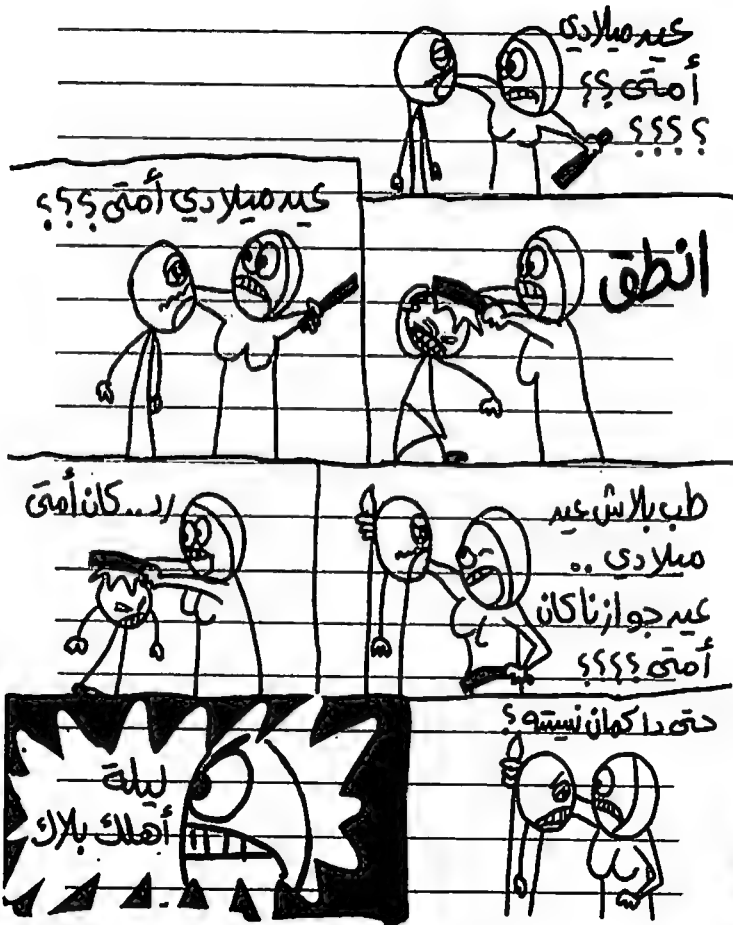 عيد ميلادي
أمتى ؟؟
؟؟؟؟
انطق
عيد ميلادي أمتى ؟؟؟
طب بلاش عيد
ميلادي ..
عيد جوازنا كان
أمتى ؟؟؟؟
رد .. كان أمتى
حتى دا كمان نسيته ؟
ليلة
أهلك بلاك